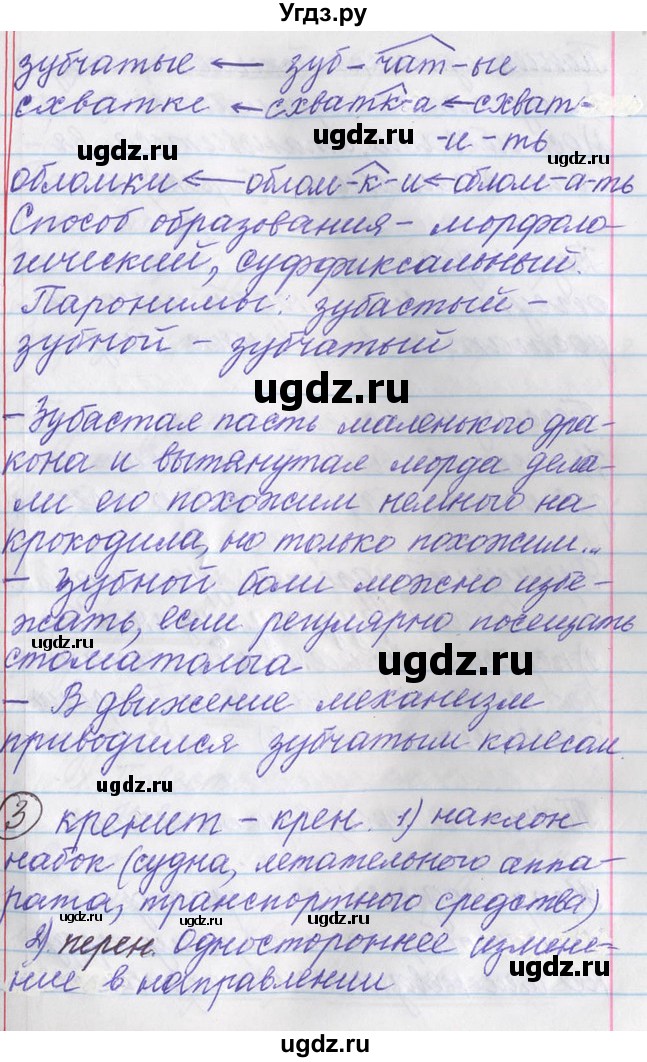 Угдз.ру
зубчатые ← зуб-чат-ые
схватке ← схватк-а ← схват-
-и-ть
ugdz.ru
ugdz.ru
ugdz.ru
обломки ← облом-к-и ← облом-а-ть
Способ образования - морфоло-
гический, суффиксальный.
Паронимы: зубастый -
зубной - зубчатый
ugdz.ru
- Зубастая пасть маленького дра-
кона и вытянутая морда дела-
ли его похожим немного на
крокодила, но только похожим...
- Зубной боли можно избе-
жать, если регулярно посещать
ugdz.ru
стоматолога
ugdz.ru
- В движение механизм
приводился зубчатым колесом.
ugdz.ru
3 кренит - крен. 1) наклон
набок (судна, летательного аппа-
рата, транспортного средства)
ugdz.ru
2) перен. одностороннее измене-
ugdz.ru
ние в направлении
ugdz.ru